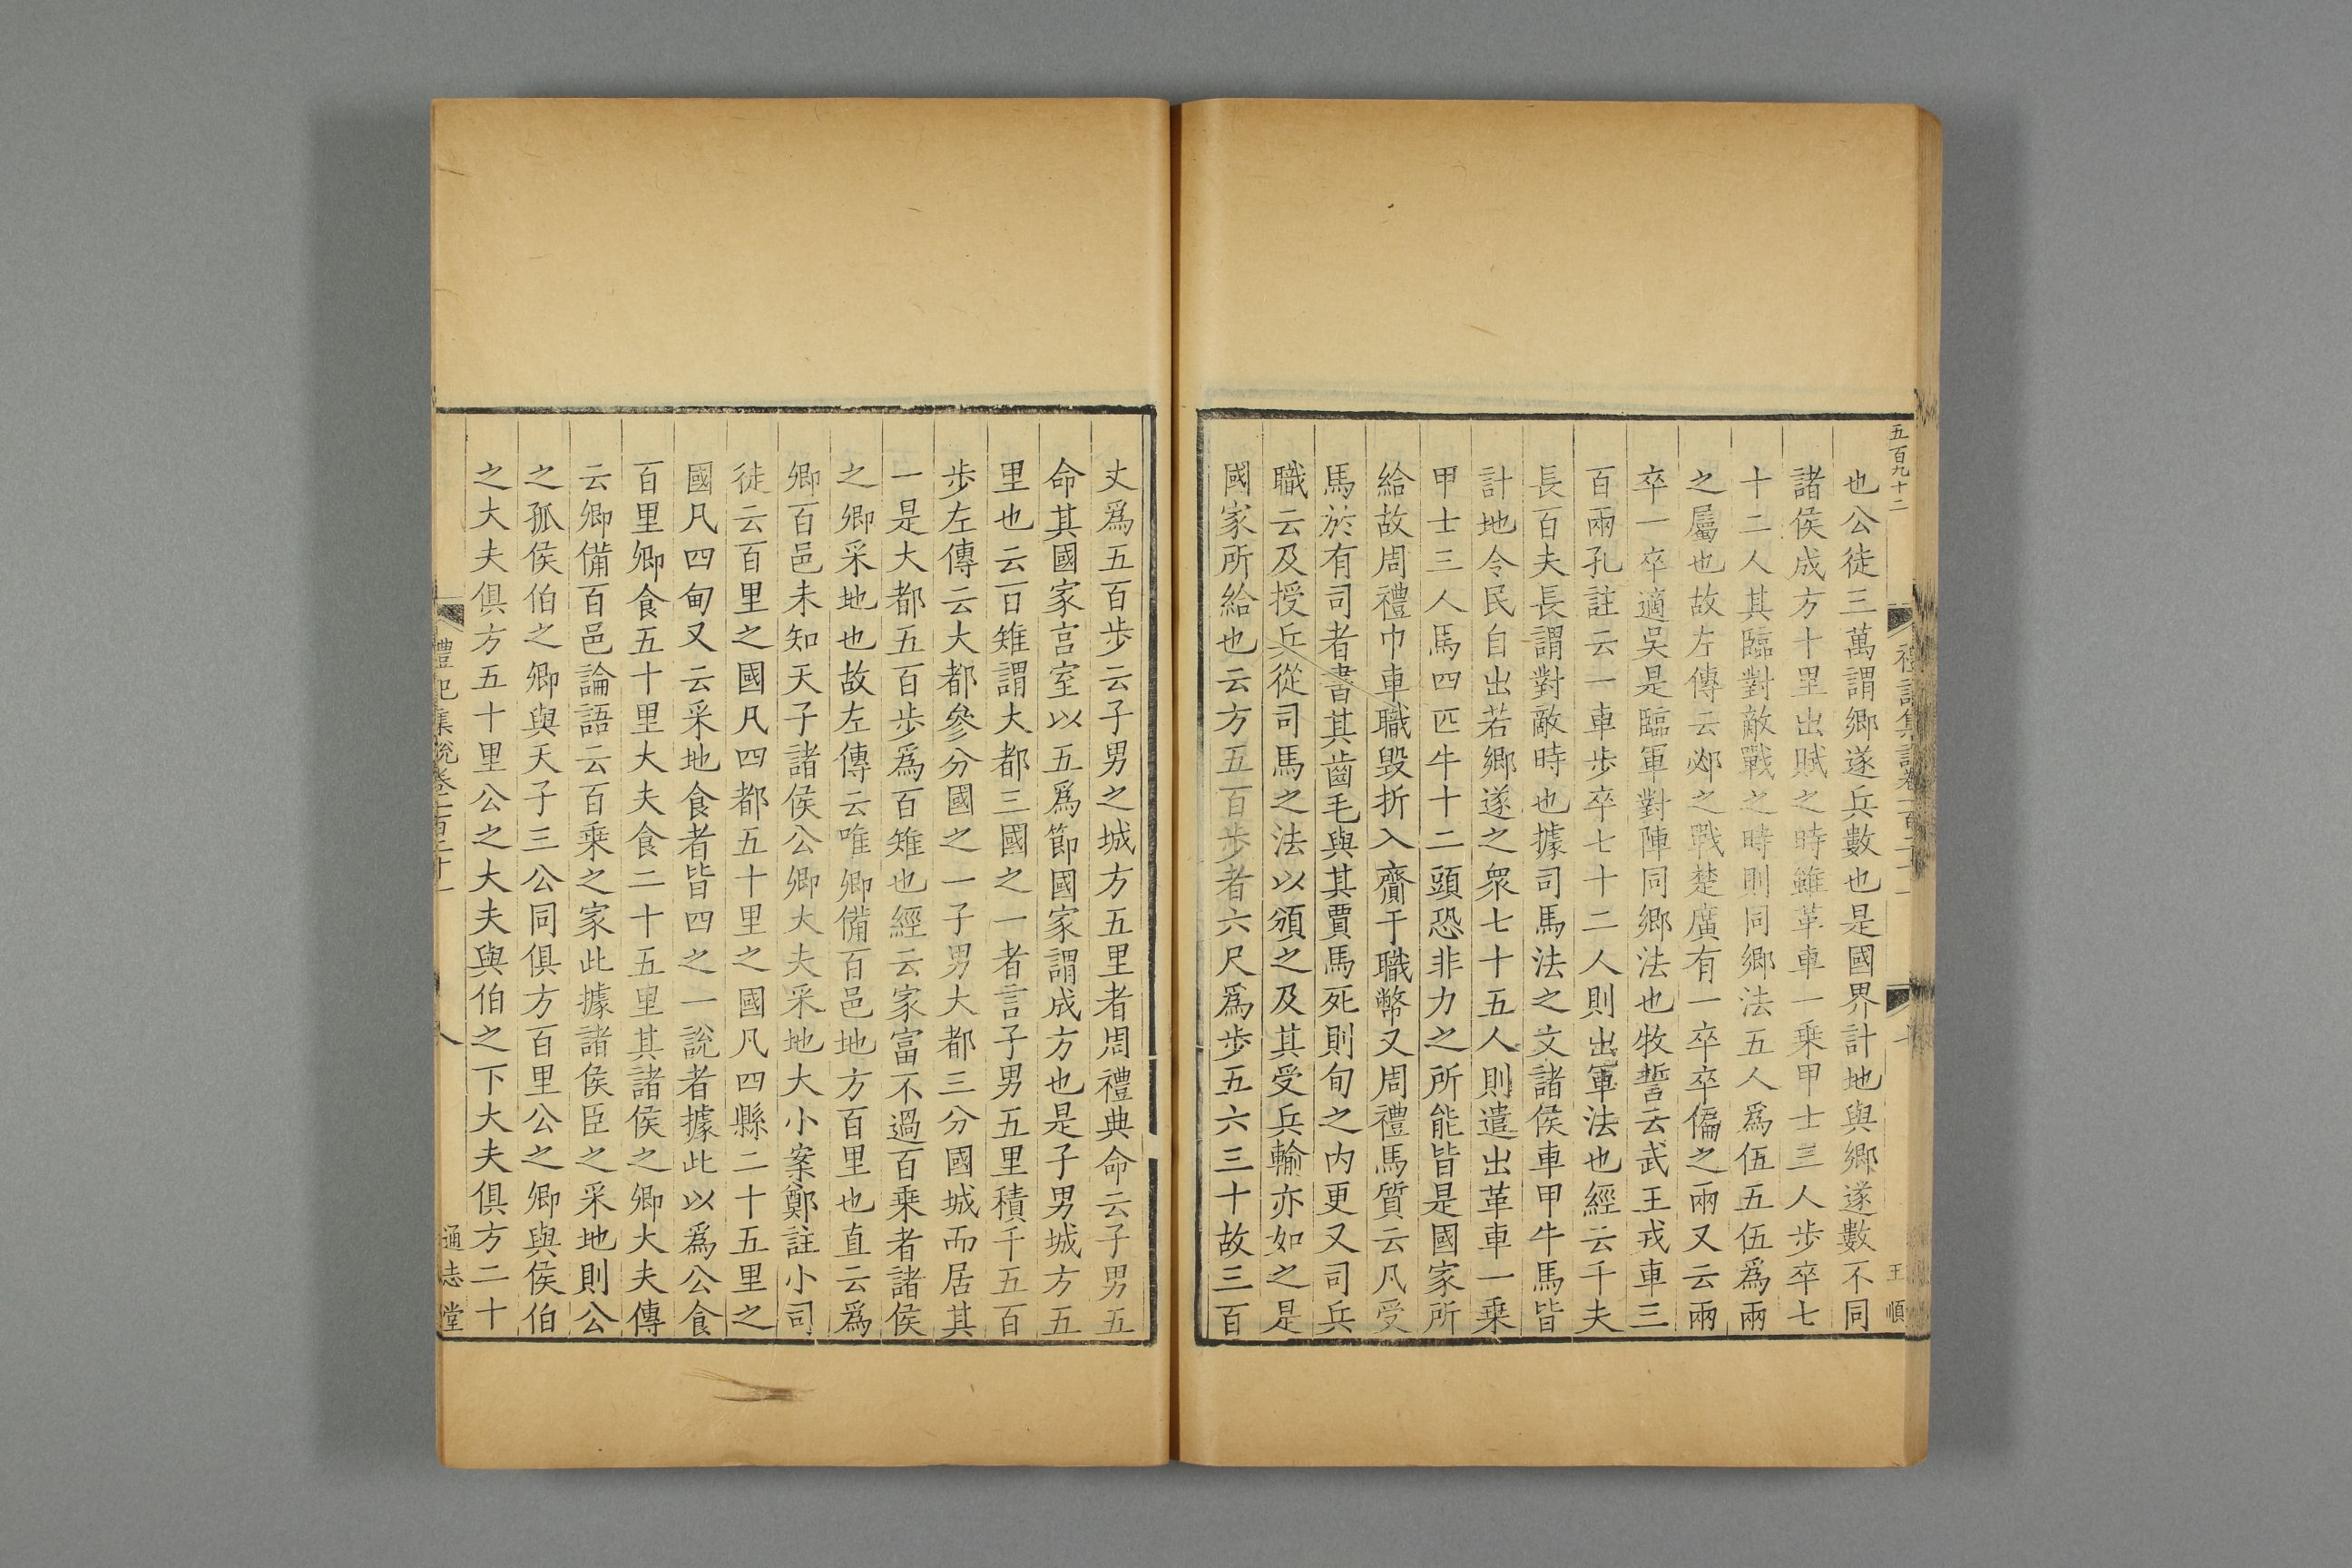 五百九十二
也公徒三萬謂鄉遂兵數也是國界計地與鄉遂數不同
諸侯成方十里出賦之時雖革車一乗甲士三人步卒七
十二人其臨對敵戰之時則同鄉法五人爲伍五伍爲兩
之屬也故左傳云邲之戰楚廣有一卒卒偏之兩又云兩
卒一卒適吳是臨軍對陣同鄉法也牧誓云武王戎車三
百兩孔註云一車步卒七十二人則出軍法也經云千夫
長百夫長謂對敵時也據司馬法之文諸侯車甲牛馬皆
計地令民自出若鄉遂之衆七十五人則遣出革車一乗
甲士三人馬四匹牛十二頭恐非力之所能皆是國家所
給故周禮巾車職毀折入齎于職幣又周禮馬質云凡受
馬於有司者書其齒毛與其賈馬死則旬之内更又司兵
職云及授兵從司馬之法以頒之及其受兵輸亦如之是
國家所給也云方五百步者六尺爲步五六三十故三百
王順
丈爲五百步云子男之城方五里者周禮典命云子男五
命其國家宮室以五爲節國家謂成方也是子男城方五
里也云百雉謂大都三國之一者言子男五里積千五百
步左傳云大都參分國之一子男大都三分國城而居其
一是大都五百步爲百雉也經云家富不過百乗者諸侯
之卿采地也故左傳云唯卿備百邑地方百里也直云爲
卿百邑未知天子諸侯公卿大夫采地大小案鄭註小司
徒云百里之國凡四都五十里之國凡四縣二十五里之
國凡四甸又云采地食者皆四之一說者據此以爲公食
百里卿食五十里大夫食二十五里其諸侯之卿大夫傳
云卿備百邑論語云百乗之家此據諸侯臣之采地則公
之孤侯伯之卿與天子三公同俱方百里公之卿與侯伯
之大夫俱方五十里公之大夫與伯之下大夫俱方二十
禮記集說卷一百二十一
八
通志堂